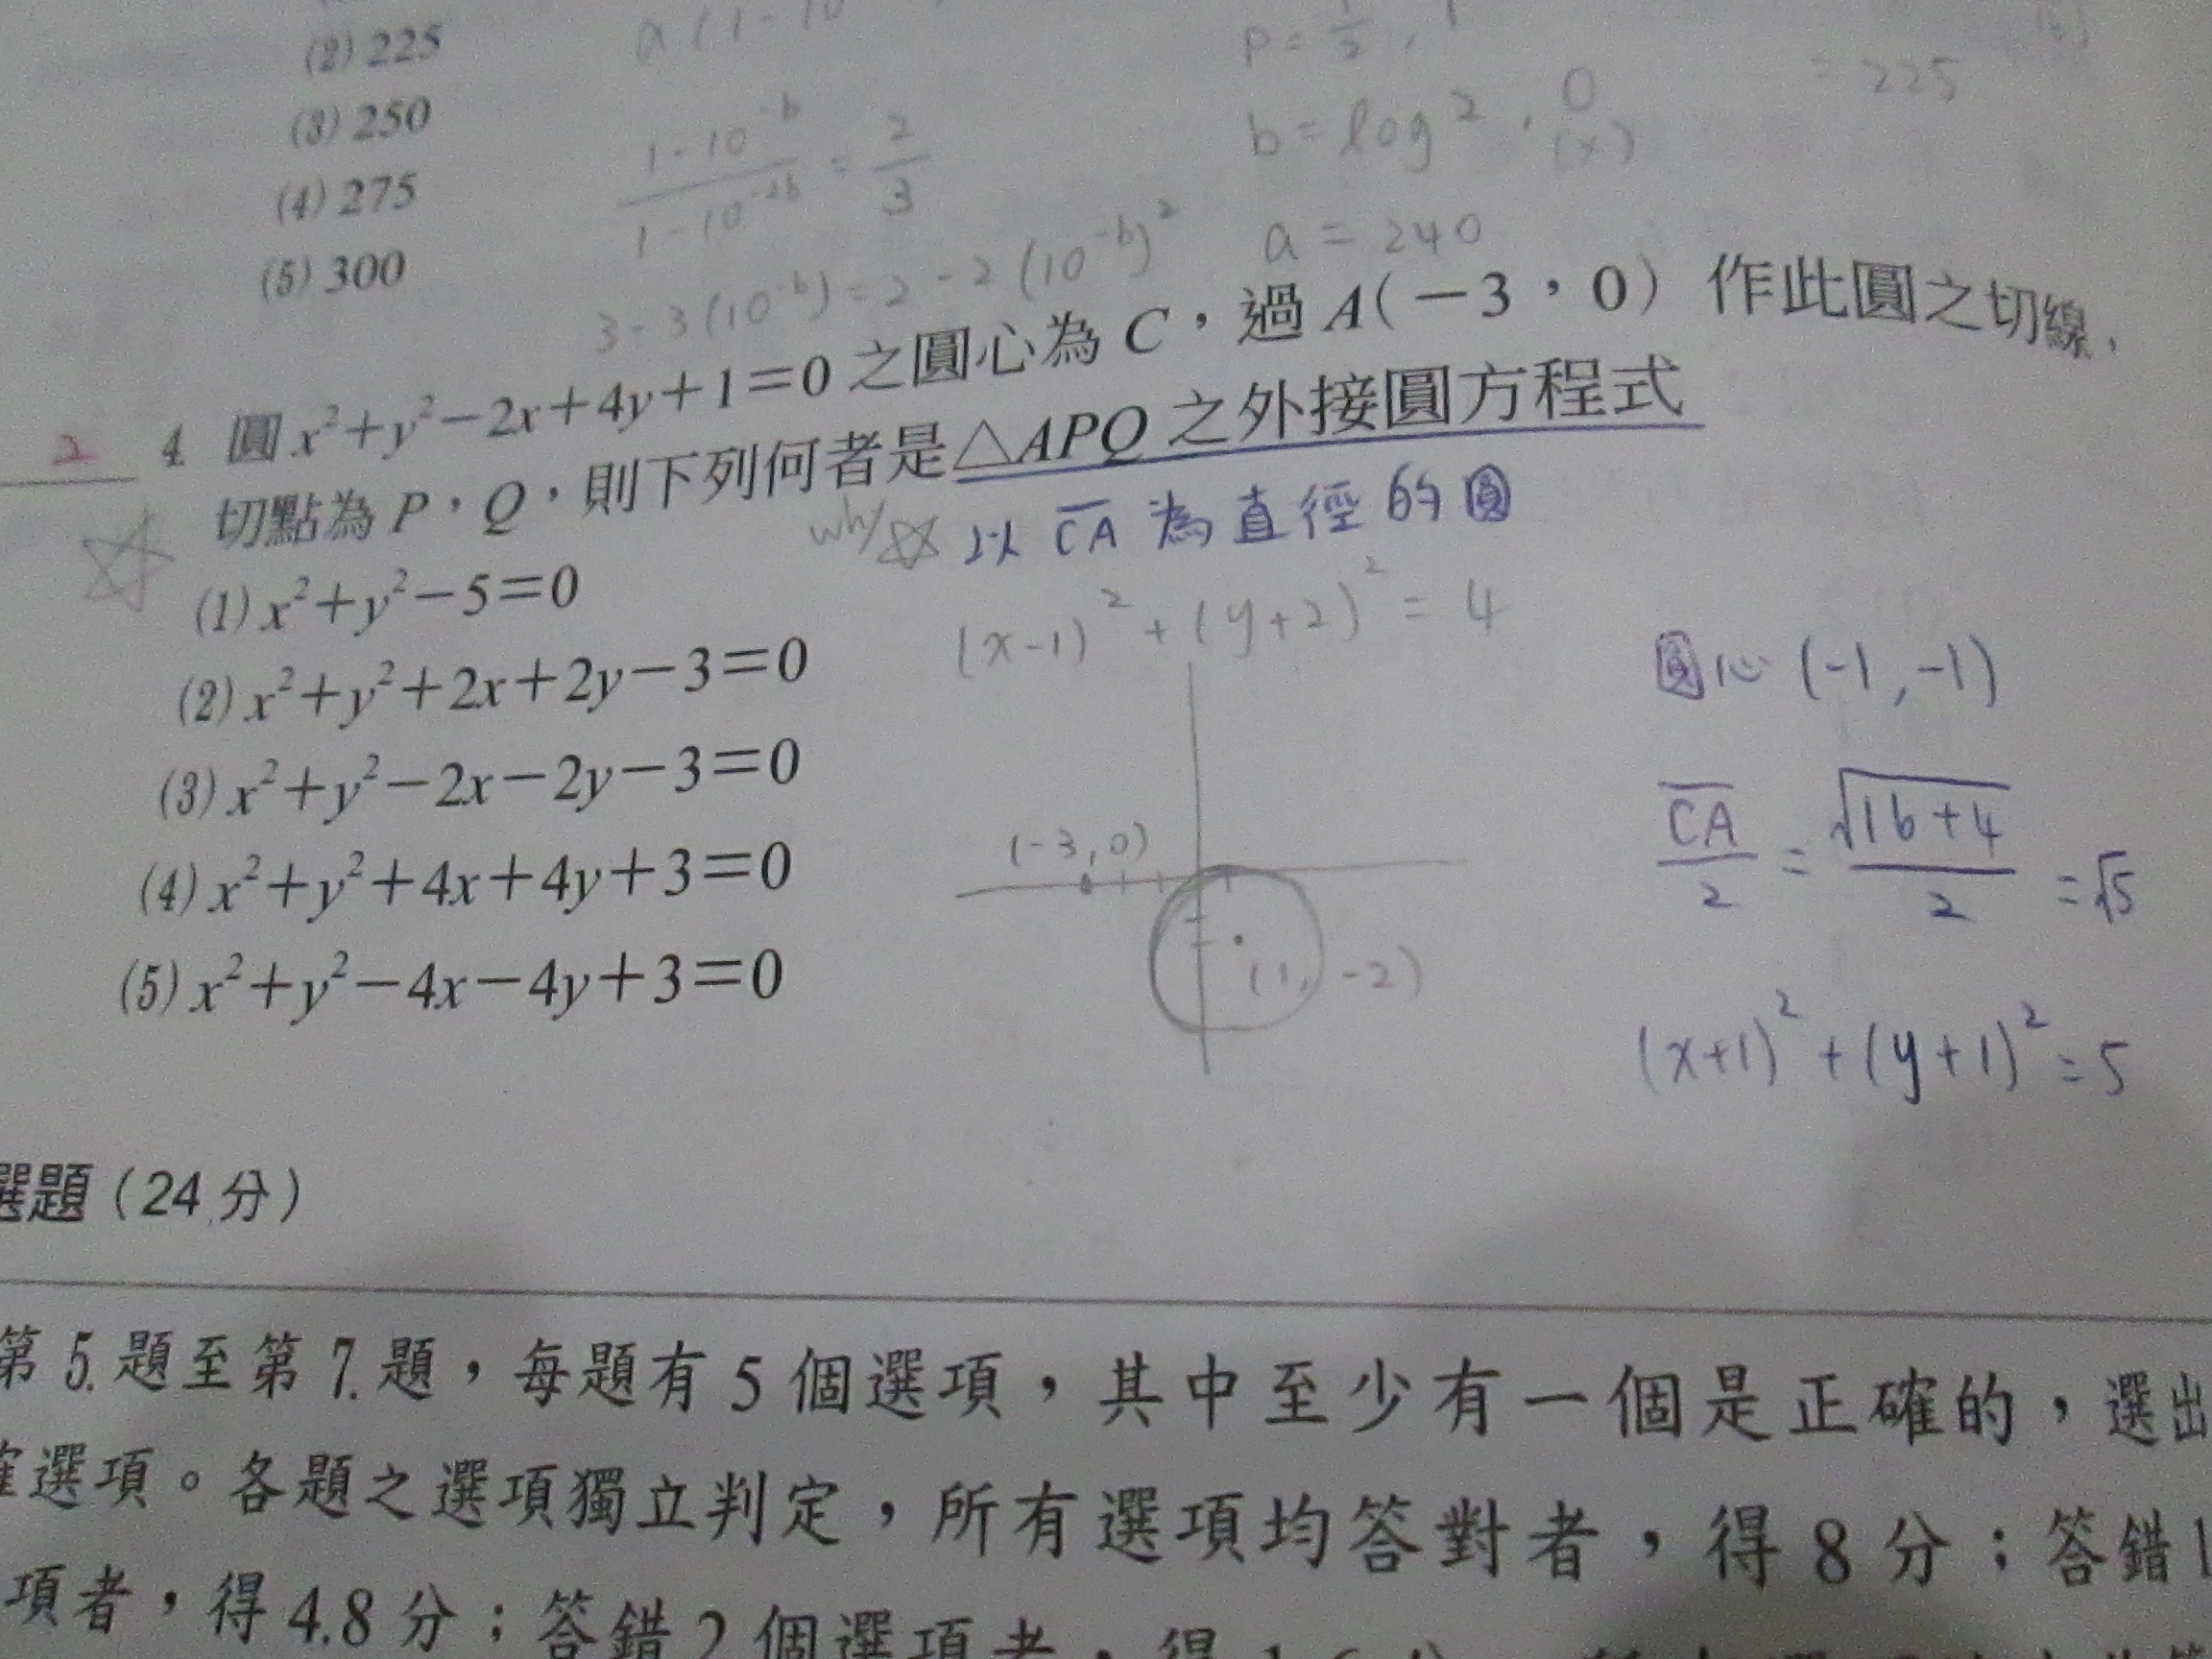 (2) 225
a(1-10
p = 1/2 , 1
(3) 250
b = log 2 , 0
(x)
= 225
(1-10^-b)/(1-10^-2b) = 2/3
(4) 275
(5) 300
a = 240
3-3(10^-b)=2-2(10^-b)²
2
4. 圓 x²+y²-2x+4y+1=0 之圓心為 C,過 A(-3,0) 作此圓之切線,
切點為 P,Q,則下列何者是△APQ 之外接圓方程式
why
以 CA 為直徑的圓
(1) x²+y²-5=0
(x-1)²+(y+2)²=4
(2) x²+y²+2x+2y-3=0
圓心 (-1,-1)
(3) x²+y²-2x-2y-3=0
CA/2 = √(16+4)/2 = √5
(-3,0)
(4) x²+y²+4x+4y+3=0
(1,-2)
(5) x²+y²-4x-4y+3=0
(x+1)²+(y+1)²=5
選題(24 分)
第 5. 題至第 7. 題,每題有 5 個選項,其中至少有一個是正確的,選出
確選項。各題之選項獨立判定,所有選項均答對者,得 8 分;答錯 1
項者,得 4.8 分;答錯 2 個選項者,得 1.6 分